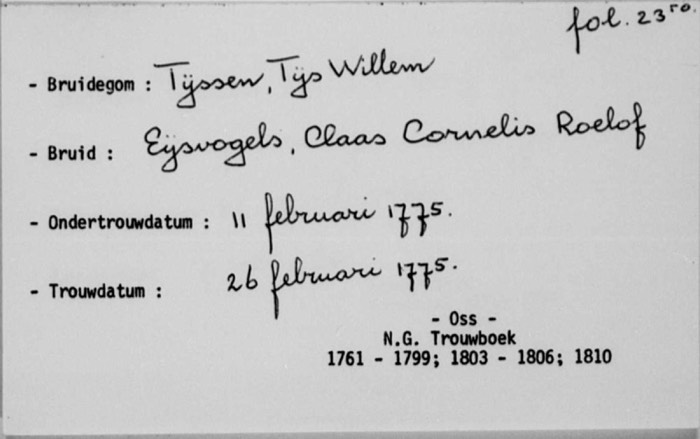 fol. 23ro.
- Bruidegom : Tijssen, Tijs Willem
- Bruid : Eijsvogels, Claas Cornelis Roelof
- Ondertrouwdatum : 11 februari 1775.
- Trouwdatum : 26 februari 1775.
- Oss -
N.G. Trouwboek
1761 - 1799; 1803 - 1806; 1810